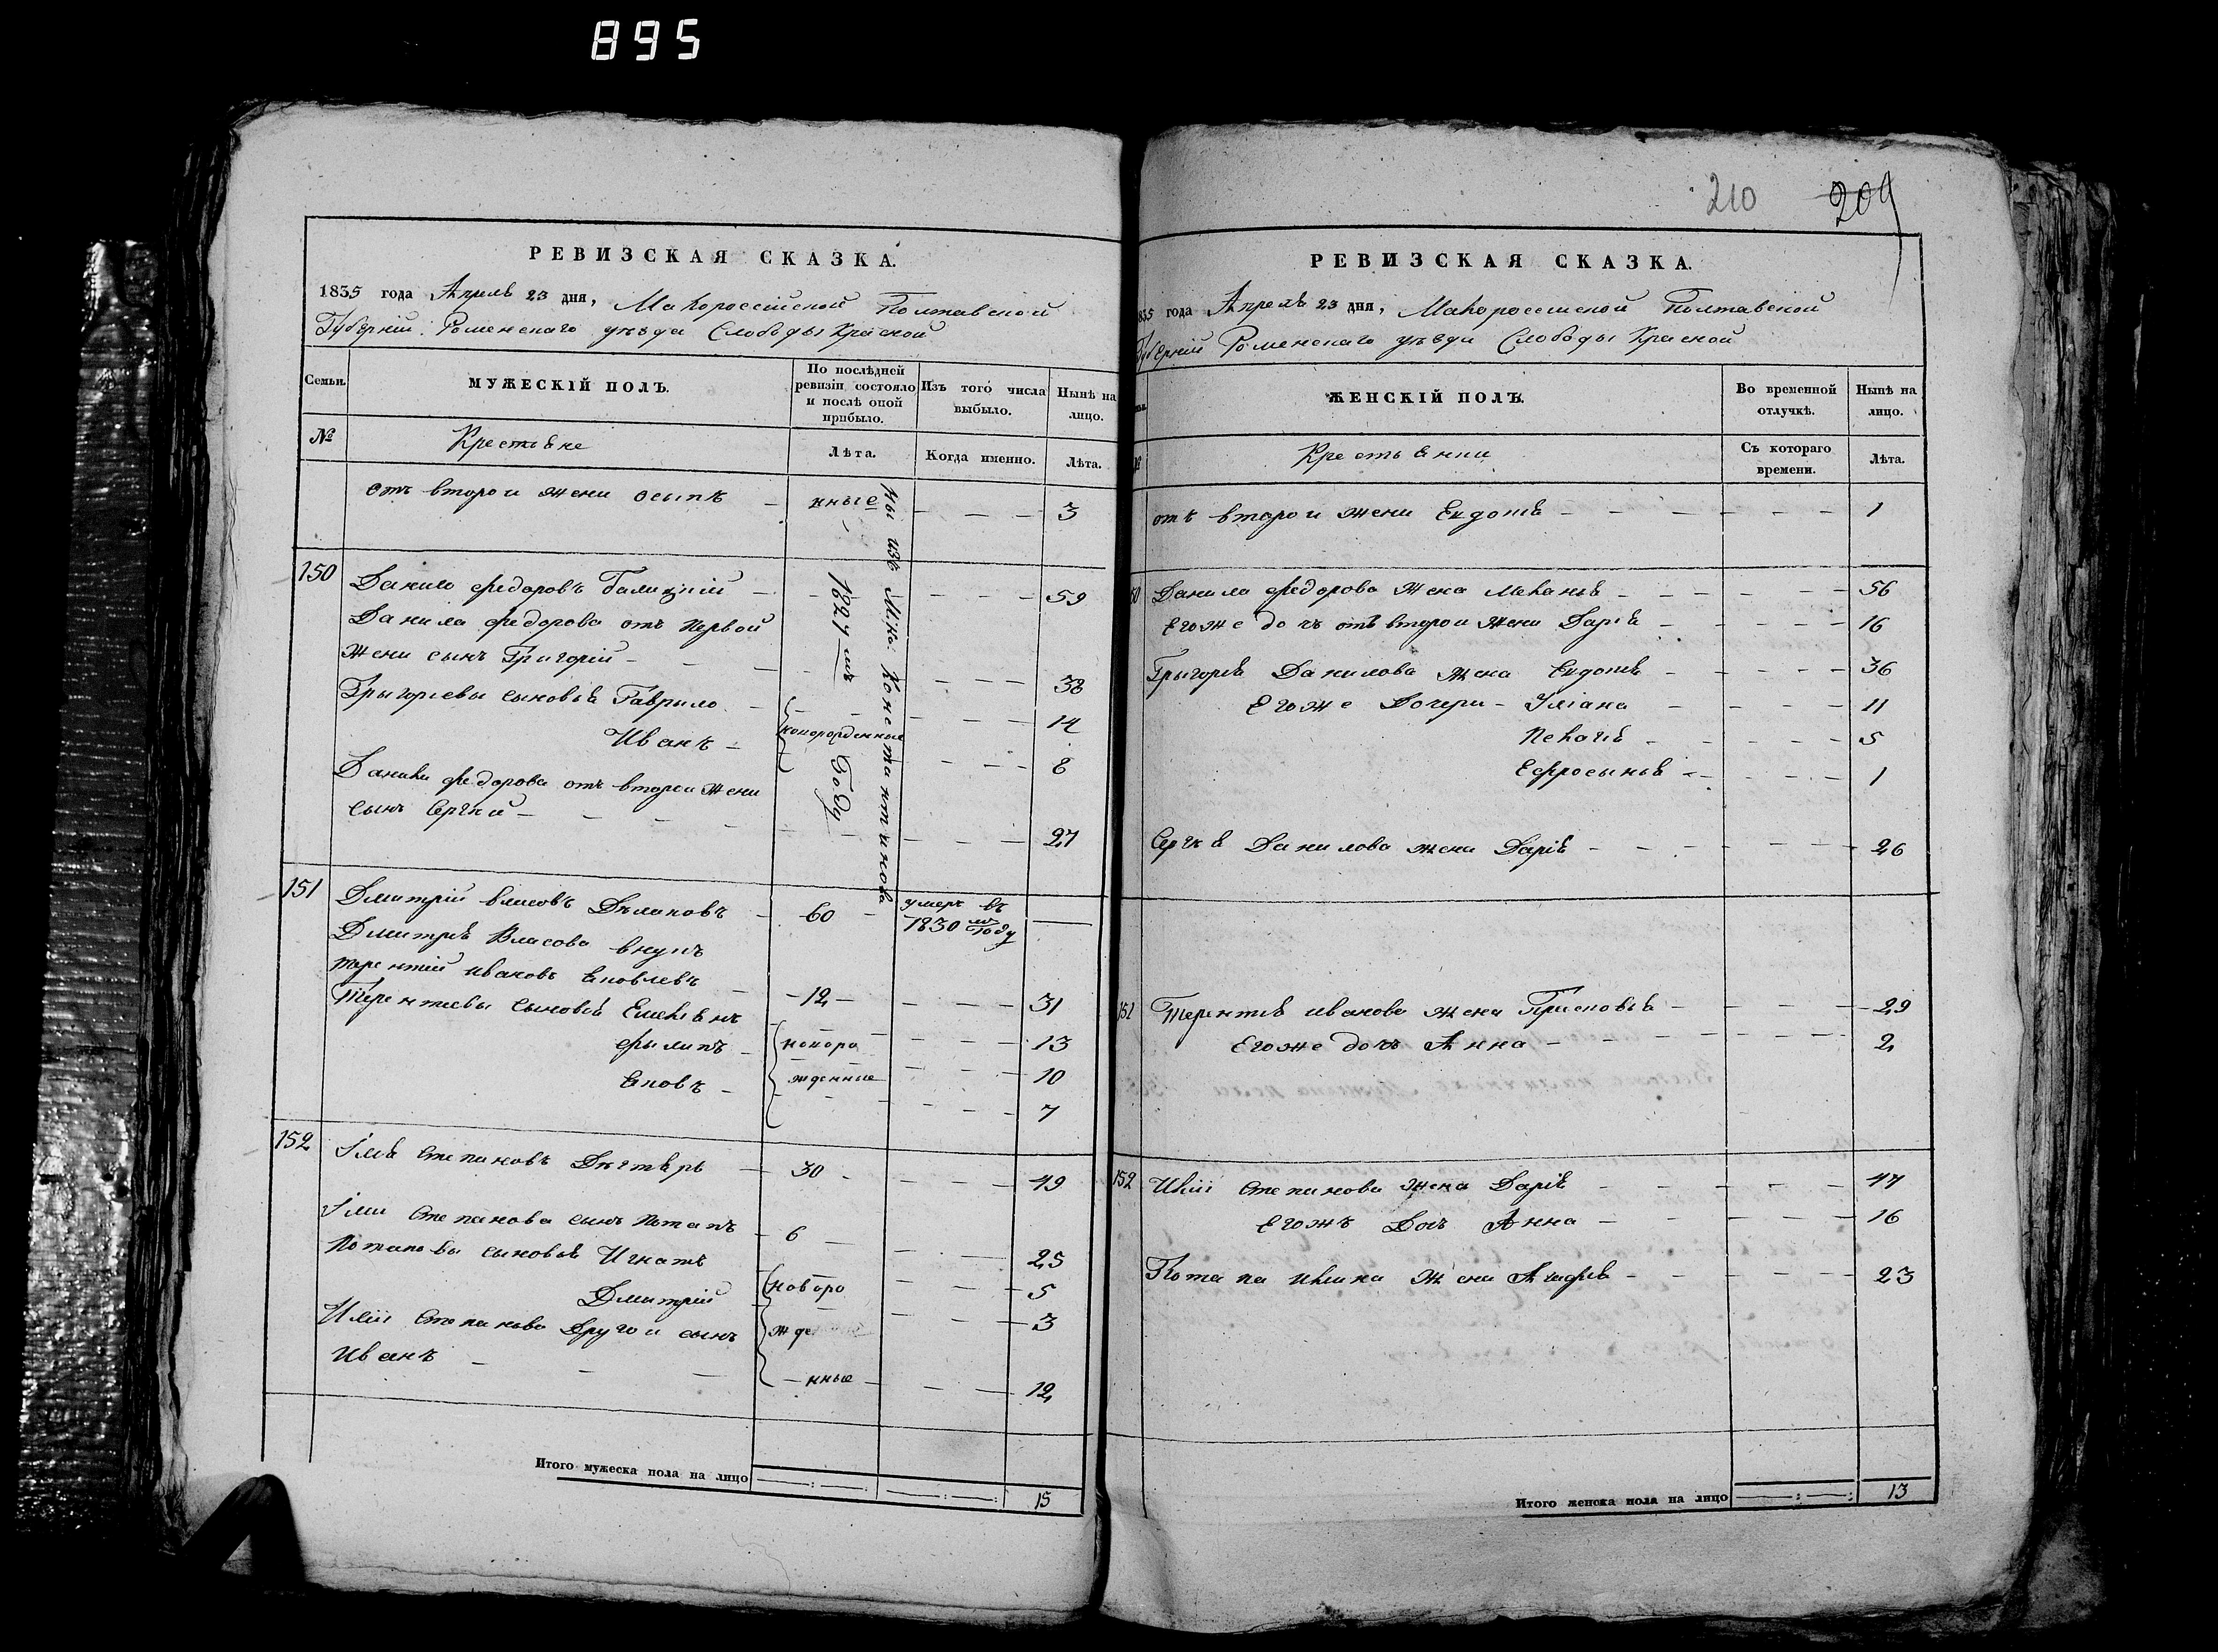 895
210 209
РЕВИЗСКАЯ СКАЗКА.
1835 года Апреля 23 дня, Малороссийской Полтавской
Губерніи Роменскаго уѣзда Слободы Красной
Семьи. МУЖЕСКІЙ ПОЛЪ. По послѣдней ревизіи состояло и послѣ оной прибыло. Изъ того числа выбыло. Нынѣ на лицо.
№ Крестьяне Лѣта. Когда именно. Лѣта.
отъ второи жени Осыпъ - нные - - - 3
150 Данило Федоровъ - - - 59
Данила Федорова отъ первой
жени сынъ Григорій - - - 38
Григорьевы сыновья Гаврыло - - - 14
Иванъ - новорожденные - - - 8
Данила Федорова отъ второи жени
сынъ Сергѣй - - - 27
1824 мъ году
151 Дмитрій Власовъ - 60 - умеръ въ 1830 мъ году —
Дмитрія Власова внукъ
Терентій Ивановъ Яковлевъ - 12 - - - 31
Терентиевы сыновья Емельянъ - - - 13
Филипъ - новоро - - - 10
Яковъ - жденные - - - 7
152 Илья Степановъ - 30 - - - 49
Илии Степанова сынъ Потапъ - 6 - - - 25
Потаповы сыновья Игнатъ - новоро - - - 5
Дмитрій жде - - - 3
Иліи Степанова другои сынъ
Иванъ - - - нные - - - 12
Итого мужеска пола на лицо 15
РЕВИЗСКАЯ СКАЗКА.
1835 года Апреля 23 дня, Малороссиской Полтавской
Губерніи Роменскаго уѣзда Слободы Красной
ЖЕНСКІЙ ПОЛЪ. Во временной отлучкѣ. Нынѣ на лицо.
№ Крестьянки Съ котораго времени. Лѣта.
отъ второи жени Евдокія - - - 1
150 Данила Федорова жена Меланья - - - 56
Егоже дочъ отъ второи жени Дарія - - - 16
Григорія Данилова жена Евдокія - - - 36
Егоже Дочери - Уліана - - - 11
Пелагія - - - 5
Ефросынья - - - 1
Сергѣя Данилова жена Дарія - - - 26
151 Терентія Иванова жена - - - 29
Егоже дочъ Анна - - - 2
152 Иліи Степанова жена Дарія - - - 47
Егожъ Дочъ Анна - - - 16
Потапа Илина жена Агафія - - - 23
Итого женска пола на лицо 13